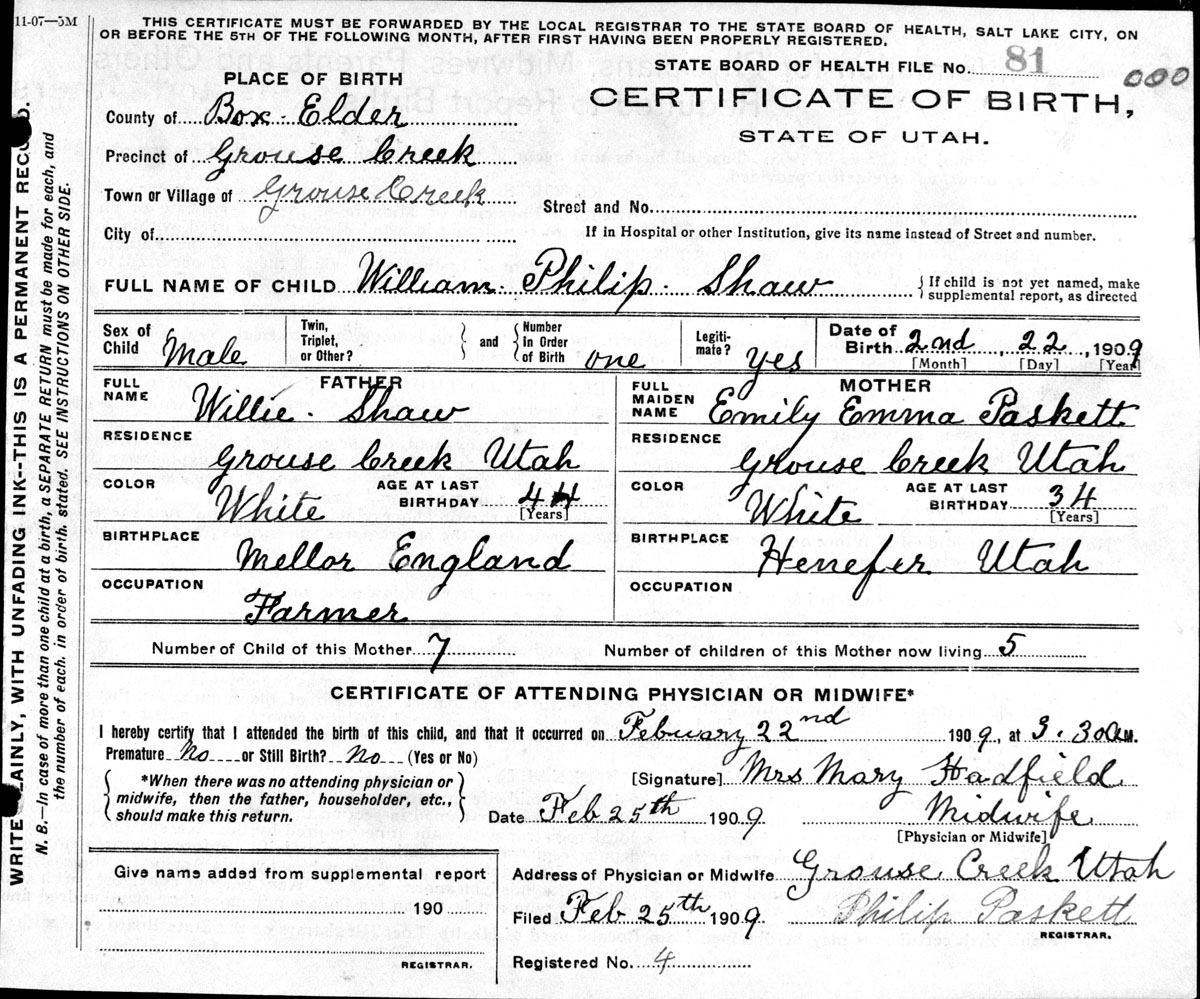 11-07—5M
THIS CERTIFICATE MUST BE FORWARDED BY THE LOCAL REGISTRAR TO THE STATE BOARD OF HEALTH, SALT LAKE CITY, ON
OR BEFORE THE 5TH OF THE FOLLOWING MONTH, AFTER FIRST HAVING BEEN PROPERLY REGISTERED.
STATE BOARD OF HEALTH FILE No. 81
000
CERTIFICATE OF BIRTH,
STATE OF UTAH.
PLACE OF BIRTH
County of Box Elder
Precinct of Grouse Creek
Town or Village of Grouse Creek
Street and No.
City of
If in Hospital or other Institution, give its name instead of Street and number.
FULL NAME OF CHILD William Philip Shaw
If child is not yet named, make
supplemental report, as directed
Sex of Child Male
Twin, Triplet, or Other?
and
Number In Order of Birth one
Legiti-mate? yes
Date of Birth 2nd, 22, 1909
[Month] [Day] [Year]
FATHER
FULL NAME Willie Shaw
RESIDENCE Grouse Creek Utah
COLOR White
AGE AT LAST BIRTHDAY 44
[Years]
BIRTHPLACE Mellor England
OCCUPATION Farmer
MOTHER
FULL MAIDEN NAME Emily Emma Paskett
RESIDENCE Grouse Creek Utah
COLOR White
AGE AT LAST BIRTHDAY 34
[Years]
BIRTHPLACE Henefer Utah
OCCUPATION
Number of Child of this Mother 7
Number of children of this Mother now living 5
CERTIFICATE OF ATTENDING PHYSICIAN OR MIDWIFE*
I hereby certify that I attended the birth of this child, and that it occurred on February 22nd 1909, at 3.30 a.M.
Premature No or Still Birth? No (Yes or No)
*When there was no attending physician or
midwife, then the father, householder, etc.,
should make this return.
[Signature] Mrs Mary Hadfield
Date Feb 25th 1909 Midwife
[Physician or Midwife]
Give name added from supplemental report
190
REGISTRAR.
Address of Physician or Midwife Grouse Creek Utah
Filed Feb 25th 1909 Philip Paskett
REGISTRAR.
Registered No. 4
WRITE LAINLY, WITH UNFADING INK--THIS IS A PERMANENT RECO D.
N. B.—In case of more than one child at a birth, a SEPARATE RETURN must be made for each, and
the number of each, in order of birth, stated. SEE INSTRUCTIONS ON OTHER SIDE.